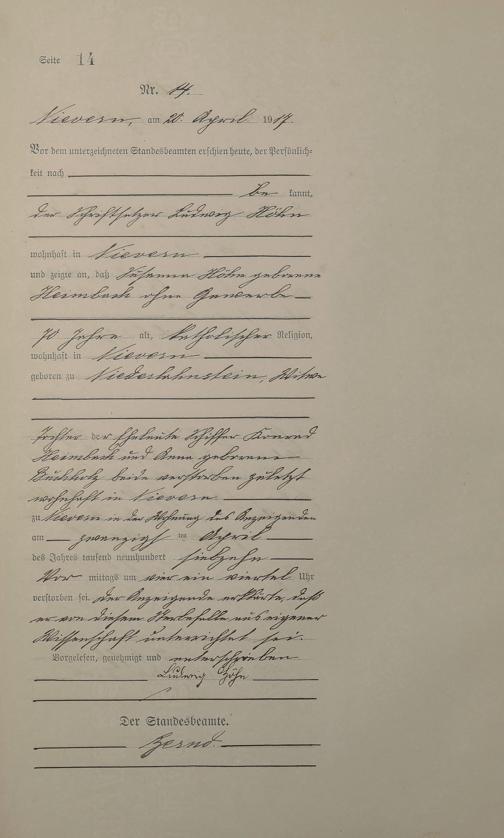 Seite 14
Nr. 14.
Nievern, am 20. April 1917.
Vor dem unterzeichneten Standesbeamten erschien heute, der Persönlich-
keit nach
be kannt,
der Schriftsetzer Ludwig Höhn
wohnhaft in Nievern
und zeigte an, daß Susanna Höhn geborene
Heimbach ohne Gewerbe
70 Jahre alt, katholischer Religion,
wohnhaft in Nievern
geboren zu Niederlahnstein, Witwe
Tochter der Eheleute Schiffer Konrad
Heimbach und Anna geborene
Buchholz beide verstorben zuletzt
wohnhaft in Nievern
zu Nievern in der Wohnung des Anzeigenden
am zwanzigst en April
des Jahres tausend neunhundert siebzehn
Vor mittags um vier ein viertel Uhr
verstorben sei. Der Anzeigende erklärte, daß
er von diesem Sterbefalle aus eigener
Wissenschaft unterrichtet sei.
Vorgelesen, genehmigt und unterschrieben
Ludwig Höhn
Der Standesbeamte.